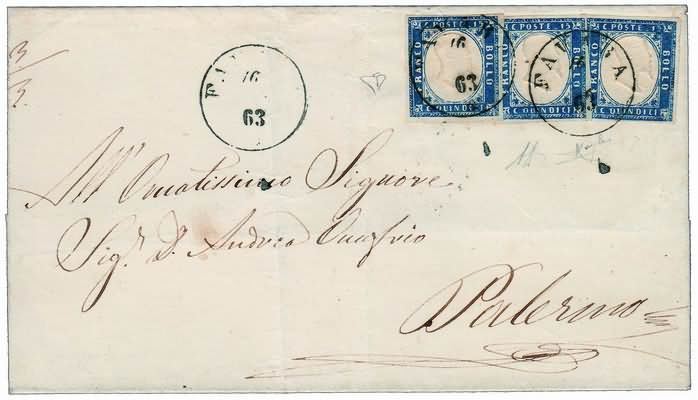 3/3
C. POSTE 15
FRANCO
BOLLO
C. QUINDICI
C. POSTE 15
FRANCO
BOLLO
C. QUINDICI
C. POSTE 15
FRANCO
BOLLO
C. QUINDICI
16
63
63
FAV
16
63
All' Ornatissimo Signore
Sig.r D. Andrea
Palermo